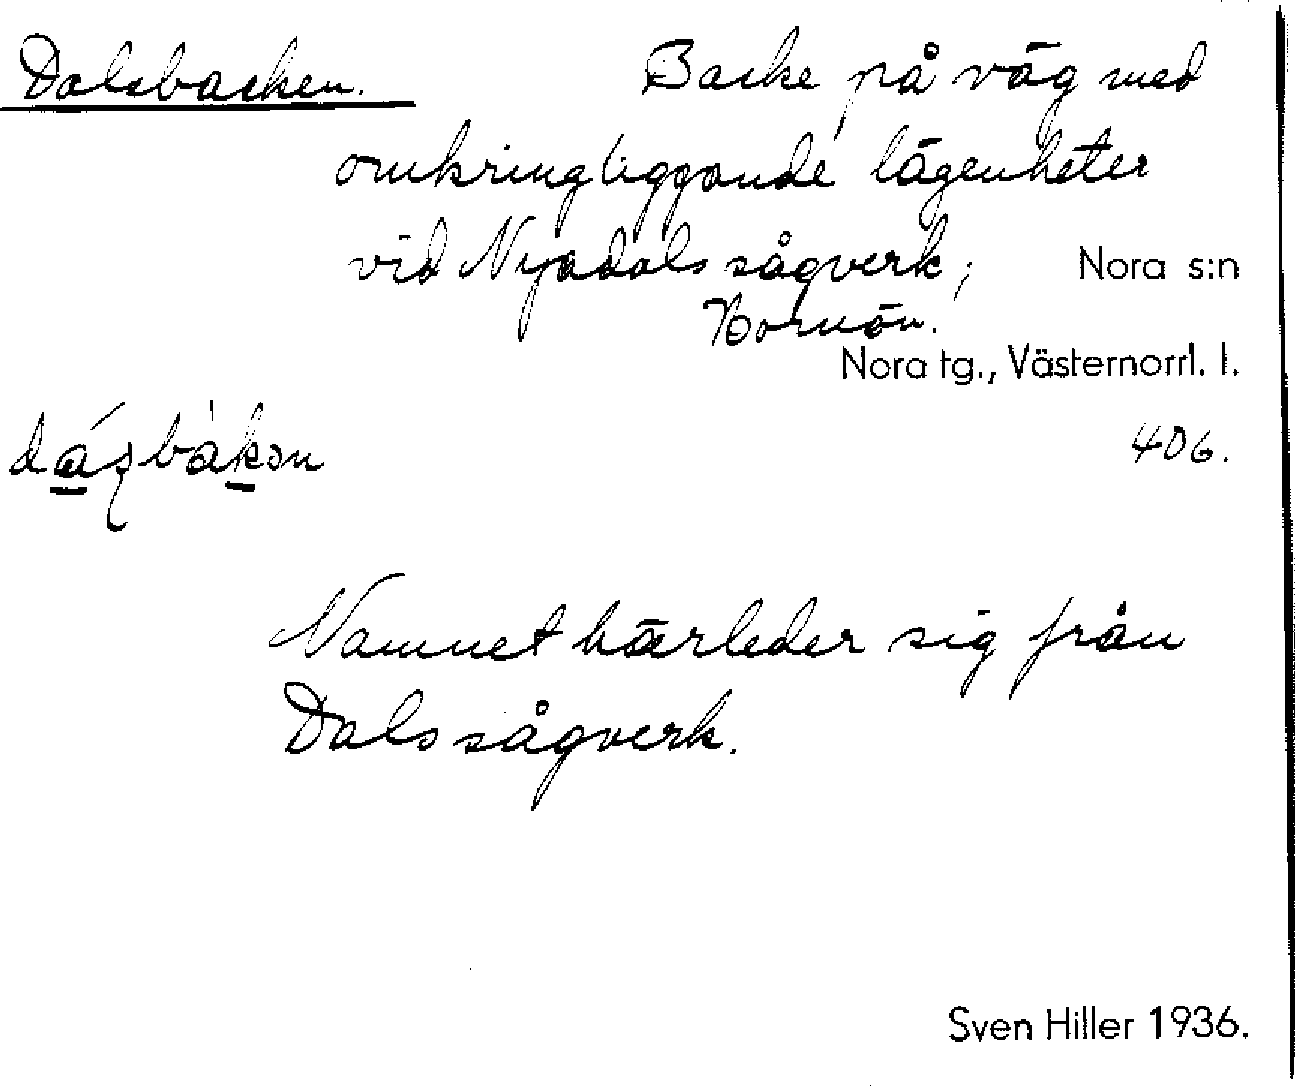 Dalsbacken. Backe på väg med
omkringliggande lägenheter
vid Nyadals sågverk, Nora s:n
Hornön.
Nora tg., Västernorrl. l.
406.
Namnet härleder sig från
Dals sågverk.
Sven Hiller 1936.